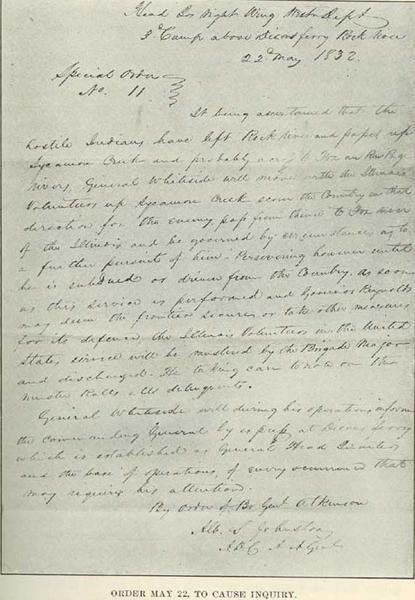 Head Qrs Right Wing Westn Dept
3d Camp above Dixons ferry Rock River
22d May 1832.
Special Order
No. 11
It being ascertained that the
hostile Indians have left Rock River and passed up
Sycamore Creek and probably across to Fox
rivers, General Whiteside will move with the Illinois
Volunteers up Sycamore Creek scour the Country in that
direction for the enemy pass from thence to Fox river
of the Illinois and be governed by circumstances as to
a further pursuit of him. Persevering however until
he is subdued or driven from the Country. As soon
as this service is performed and Governor Reynolds
may deem the frontiers secure, or take other measures
for its defence, the Illinois Volunteers in the United
States service will be mustered by the Brigade Major
and discharged. He taking care to note on the
muster Rolls all delinquents.
General Whiteside will during his operations inform
the commanding General by express at Dixons ferry
which is established as General Head Quarters
and the base of operations, of every occurrence that
may require his attention.
By order of Br. Genl Atkinson
Alb. S. Johnston
A.D.C. A A Genl
ORDER MAY 22, TO CAUSE INQUIRY.